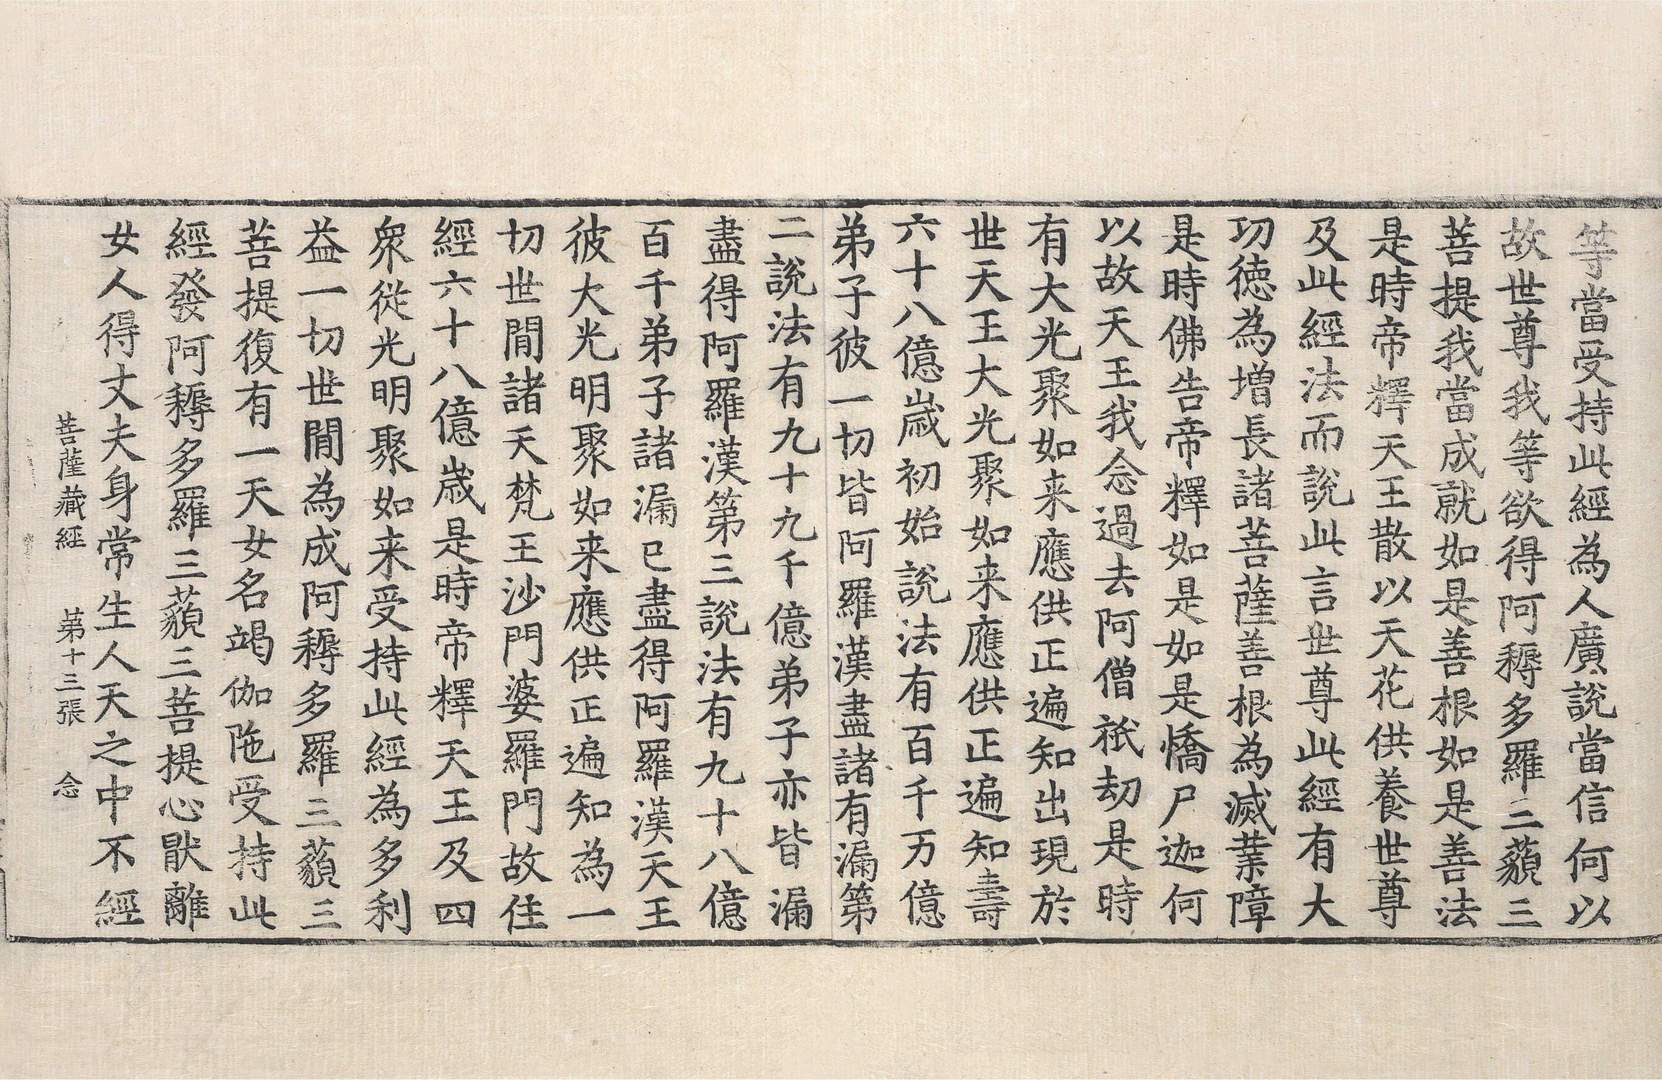 等當受持此經為人廣說當信何以
故世尊我等欲得阿耨多羅三藐三
菩提我當成就如是善根如是善法
是時帝釋天王散以天花供養世尊
及此經法而說此言世尊此經有大
功德為增長諸菩薩善根為滅業障
是時佛告帝釋如是如是憍尸迦何
以故天王我念過去阿僧祇劫是時
有大光聚如来應供正遍知出現於
世天王大光聚如来應供正遍知壽
六十八億歲初始說法有百千万億
弟子彼一切皆阿羅漢盡諸有漏第
二說法有九十九千億弟子亦皆漏
盡得阿羅漢第三說法有九十八億
百千弟子諸漏已盡得阿羅漢天王
彼大光明聚如来應供正遍知為一
切世間諸天梵王沙門婆羅門故住
經六十八億歲是時帝釋天王及四
衆從光明聚如来受持此經為多利
益一切世間為成阿耨多羅三藐三
菩提復有一天女名竭伽陁受持此
經發阿耨多羅三藐三菩提心猒離
女人得丈夫身常生人天之中不經
菩薩藏經 第十三張 念